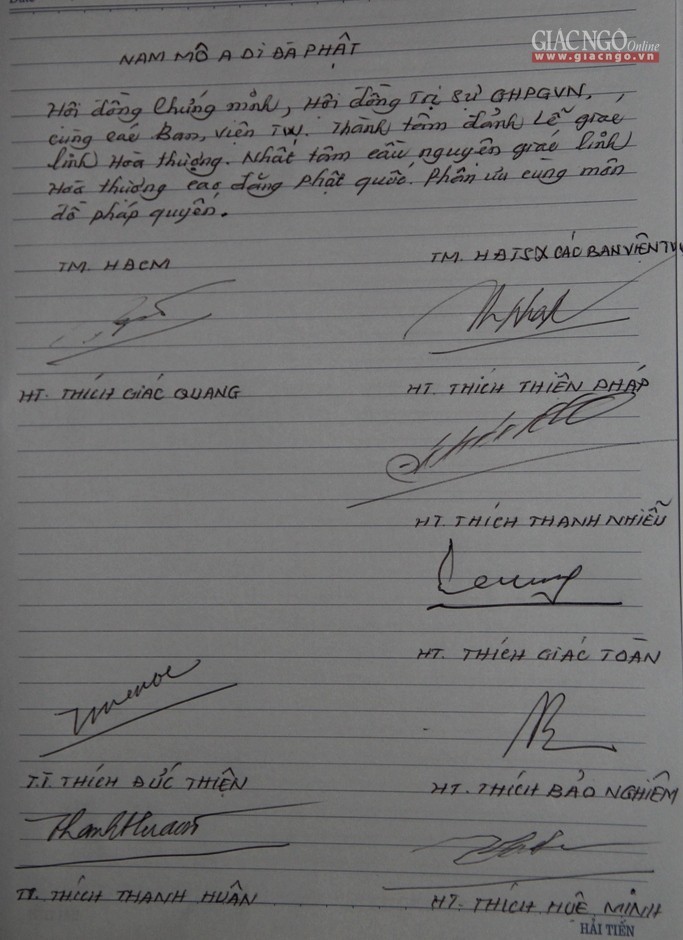 GIÁC NGỘ Online
www.giacngo.vn
NAM MÔ A DI ĐÀ PHẬT
Hội đồng Chứng minh, Hội đồng Trị sự GHPGVN,
cùng các Ban, Viện TW. Thành tâm đảnh Lễ giác
linh Hoà thượng. Nhất tâm cầu nguyện giác linh
Hoà thượng cao đăng Phật quốc. Phân ưu cùng môn
đồ pháp quyến.
TM. HĐCM
TM. HĐTS & CÁC BAN VIỆN TW
HT. THÍCH GIÁC QUANG
HT. THÍCH THIỆN PHÁP
HT. THÍCH THANH NHIỄU
HT. THÍCH GIÁC TOÀN
T.T. THÍCH ĐỨC THIỆN
HT. THÍCH BẢO NGHIÊM
TT. THÍCH THANH HUÂN
HT. THÍCH HUỆ MINH
HẢI TIẾN